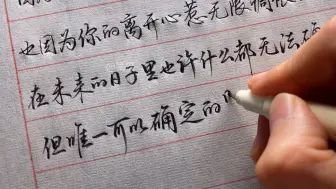 也因为你的离开心惹无限惆怅
在未来的日子里也许什么都无法确
但唯一可以确定的